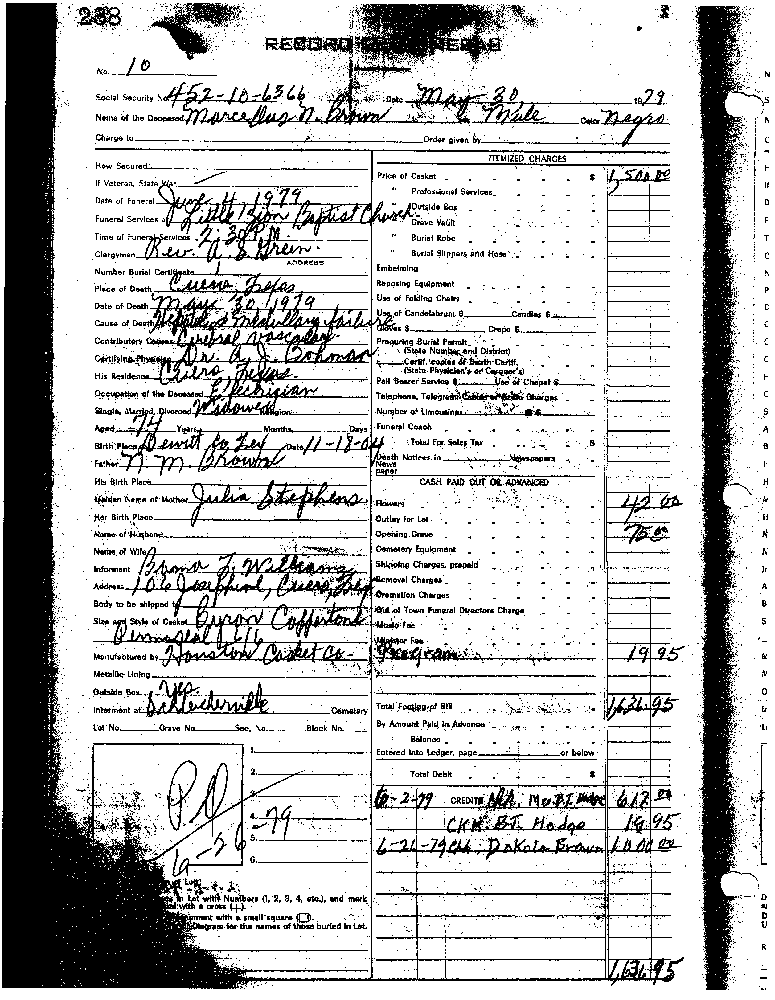 238
RECORD OF FUNERAL
No. 10
Social Security No. 452-10-6366 Date May 30 1979
Name of the Deceased Marcellus N. Brown Male Color Negro
Charge to Order given by
How Secured
If Veteran, State War
Date of Funeral June 4 1979
Funeral Services at Little Zion Baptist Church
Time of Funeral Services 2:30 P.M.
Clergyman Rev. A. S. Green
ADDRESS
Number Burial Certificate
Place of Death Cuero, Texas
Date of Death May 30 1979
Cause of Death medullary failure
Contributory Causes Cerebral vascular
Certifying Physician Dr. A. J. Bohman
His Residence Cuero Texas
Occupation of the Deceased Electrician
Single, Married, Divorced Widowed Religion
Aged 74 Years Months Days
Birth Place Dewitt Co Tex Date 11-18-04
Father N. M. Brown
His Birth Place
Maiden Name of Mother Julia Stephens
Her Birth Place
Name of Husband
Name of Wife
Informant Williams
Address 106 Josephine, Cuero, Tex
Body to be shipped to
Size and Style of Casket Byron Coppertone
Permaseal
Manufactured by Houston Casket Co-
Metallic Lining
Outside Box Yes
Interment at Schleicherville Cemetery
Lot No. Grave No. Sec. No. Block No.
PD
6-26-79
1.
2.
3.
4.
5.
6.
in Lot with Numbers (1, 2, 3, 4, etc.), and mark
with a cross
with a small square
Diagram for the names of those buried in Lot.
ITEMIZED CHARGES
Price of Casket $ 1,500.00
" Professional Services
" Outside Box
" Grave Vault
" Burial Robe
" Burial Slippers and Hose
Embalming
Reposing Equipment
Use of Folding Chairs
Use of Candelabrum $ Candles $
Gloves $ Crepe $
Preparing Burial Permit
(State Number and District)
Certif. copies of Death Certif.
(State Physician's or Coroner's)
Pall Bearer Service $ Use of Chapel $
Telephone, Telegram, Cable or Radio Charges
Number of Limousines @ $
Funeral Coach
Total For Sales Tax $
Death Notices in Newspapers
News
paper
CASH PAID OUT OR ADVANCED
Flowers 42 00
Outlay for Lot
Opening Grave 75 00
Cemetery Equipment
Shipping Charges, prepaid
Removal Charges
Cremation Charges
Out of Town Funeral Directors Charge
Music Fee
Minister Fee
Program 19 95
Total Footing of Bill 1,636.95
By Amount Paid in Advance
Balance
Entered into Ledger, page or below
Total Debit $
6-2-79 CREDITS 617 00
CK# B.T. Hodge 19 95
6-26-79 Dakota Brown 1000 00
1,636 95